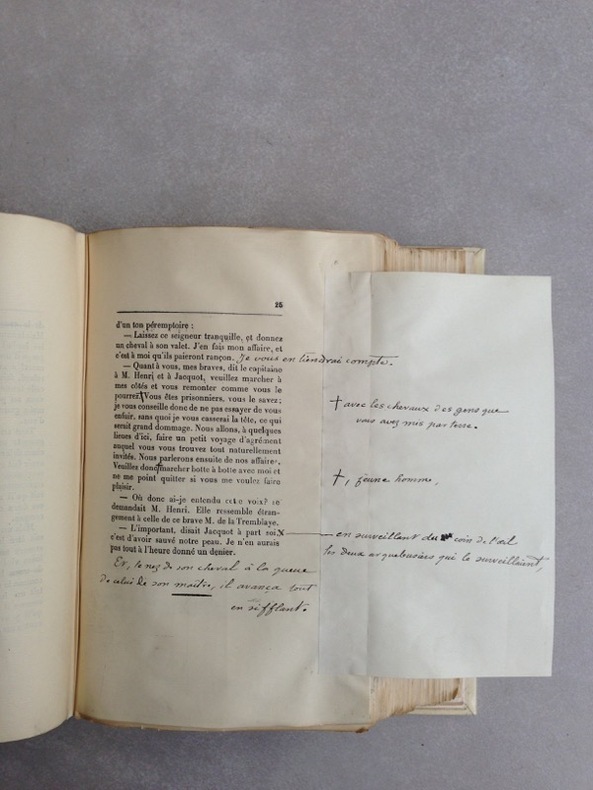 25
d'un ton péremptoire :
— Laissez ce seigneur tranquille, et donnez
un cheval à son valet. J'en fais mon affaire, et
c'est à moi qu'ils paieront rançon. Je vous en tiendrai compte.
— Quant à vous, mes braves, dit le capitaine
à M. Henri et à Jacquot, veuillez marcher à
mes côtés et vous remonter comme vous le
pourrez.† Vous êtes prisonniers, vous le savez ;
je vous conseille donc de ne pas essayer de vous
enfuir, sans quoi je vous casserai la tête, ce qui
serait grand dommage. Nous allons, à quelques
lieues d'ici, faire un petit voyage d'agrément
auquel vous vous trouvez tout naturellement
invités. Nous parlerons ensuite de nos affaires.
Veuillez donc† marcher botte à botte avec moi et
ne me point quitter si vous me voulez faire
plaisir.
— Où donc ai-je entendu cette voix? se
demandait M. Henri. Elle ressemble étran-
gement à celle de ce brave M. de la Tremblaye.
— L'important, disait Jacquot à part soi, X
c'est d'avoir sauvé notre peau. Je n'en aurais
pas tout à l'heure donné un denier.
Et, le nez de son cheval à la queue
de celui de son maître, il avança tout
en sifflant.
† avec les chevaux des gens que
vous avez mis par terre.
†, jeune homme,
en surveillant du coin de l'œil
les deux arquebusiers qui le surveillaient,